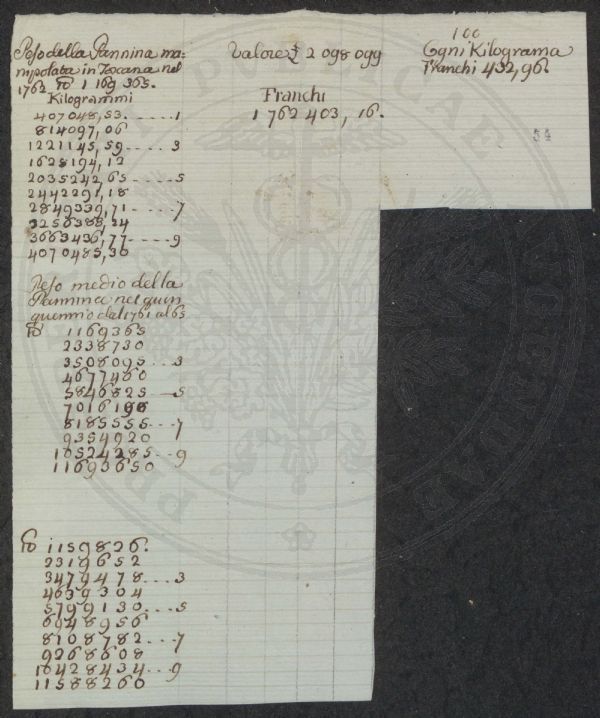 Peso della Pannina ma-
nipolata in Toscana nel
1762 ℔ 1 169 365.
Kilogrammi
407048,53. ..... 1
814097,06
1221145,59 .... 3
1628194,12
2035242,65 ..... 5
2442291,18
2849339,71 ..... 7
3256388,24
3663436,77 ..... 9
4070485,30
Valore £ 2 098 099
Franchi
1 762 403, 16.
100
Ogni Kilograma
Franchi 432,96.
54
Peso medio della
Pannina nel quin
quennio dal 1761 al 65
℔ 1169365
2338730
3508095 ... 3
4677460
5846825 ... 5
7016190
8185555 ... 7
9354920
10524285 ... 9
11693650
℔ 1159826.
2319652
3479478 ... 3
4639304
5799130 ... 5
6948956
8108782 ... 7
9268608
10428434 ... 9
11588260